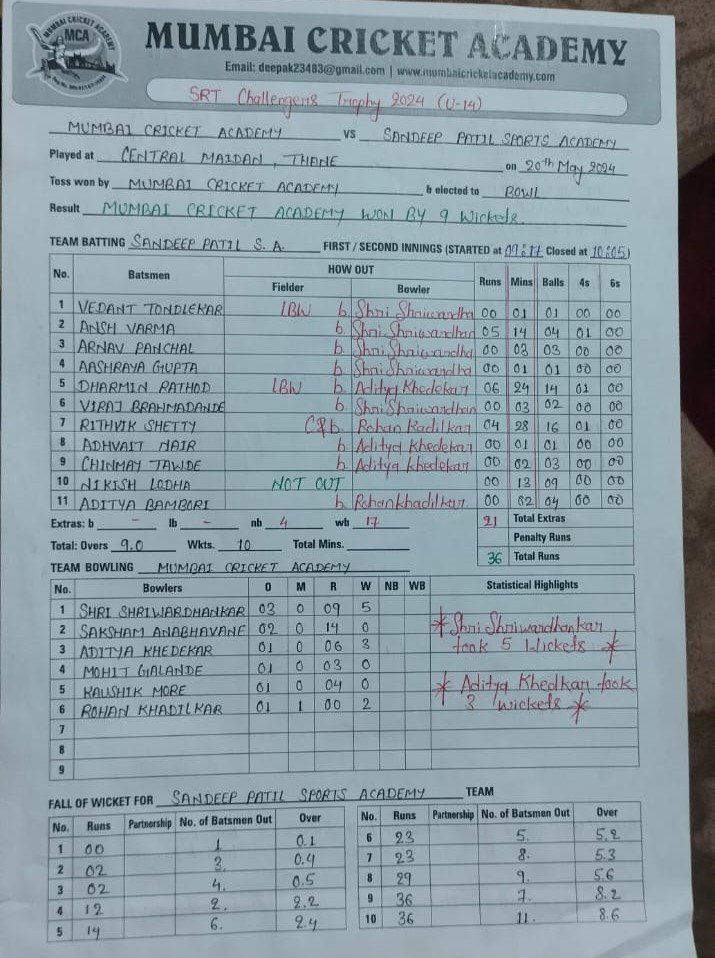 MUMBAI CRICKET ACADEMY
MCA
MUMBAI CRICKET ACADEMY
Email: deepak23483@gmail.com | www.mumbaicricketacademy.com
SRT Challengers Trophy 2024 (U-14)
MUMBAI CRICKET ACADEMY VS SANDEEP PATIL SPORTS ACADEMY
Played at CENTRAL MAIDAN, THANE on 20th May 2024
Toss won by MUMBAI CRICKET ACADEMY & elected to BOWL
Result MUMBAI CRICKET ACADEMY WON BY 9 Wickets.
TEAM BATTING SANDEEP PATIL S. A. FIRST / SECOND INNINGS (STARTED at 09:17 Closed at 10:05)
No. Batsmen HOW OUT Runs Mins Balls 4s 6s
Fielder Bowler
1 VEDANT TONDLEKAR LBW b Shri Shriwardha 00 01 01 00 00
2 ANSH VARMA b Shri Shriwardhan 05 14 04 01 00
3 ARNAV PANCHAL b Shri Shriwardha 00 03 03 00 00
4 AASHRAYA GUPTA b Shri Shriwardha 00 01 01 00 00
5 DHARMIN RATHOD LBW b Aditya Khedekar 06 24 14 01 00
6 VIRAJ BRAHMADANDE b Shri Shriwardhan 00 03 02 00 00
7 RITHVIK SHETTY C&b Rohan Kadilkar 04 28 16 01 00
8 ADHVAIT NAIR b Aditya Khedekar 00 01 01 00 00
9 CHINMAY TAWDE b Aditya Khedekar 00 02 03 00 00
10 NIKISH LODHA NOT OUT 00 13 09 00 00
11 ADITYA BAMBORI b Rohan Khadilkar 00 02 04 00 00
Extras: b - lb - nb 4 wb 17 21 Total Extras
Penalty Runs
Total: Overs 9.0 Wkts. 10 Total Mins. 36 Total Runs
TEAM BOWLING MUMBAI CRICKET ACADEMY
No. Bowlers O M R W NB WB Statistical Highlights
1 SHRI SHRIWARDHANKAR 03 0 09 5
2 SAKSHAM ANABHAVANE 02 0 14 0 * Shri Shriwardhankar
3 ADITYA KHEDEKAR 01 0 06 3 took 5 Wickets *
4 MOHIT GALANDE 01 0 03 0
5 KAUSHIK MORE 01 0 04 0 * Aditya Khedkar took
6 ROHAN KHADILKAR 01 1 00 2 3 wickets *
7
8
9
FALL OF WICKET FOR SANDEEP PATIL SPORTS ACADEMY TEAM
No. Runs Partnership No. of Batsmen Out Over
1 00 1. 0.1
2 02 3. 0.4
3 02 4. 0.5
4 12 2. 2.2
5 14 6. 2.4
No. Runs Partnership No. of Batsmen Out Over
6 23 5. 5.2
7 23 8. 5.3
8 29 9. 5.6
9 36 7. 8.2
10 36 11. 8.6